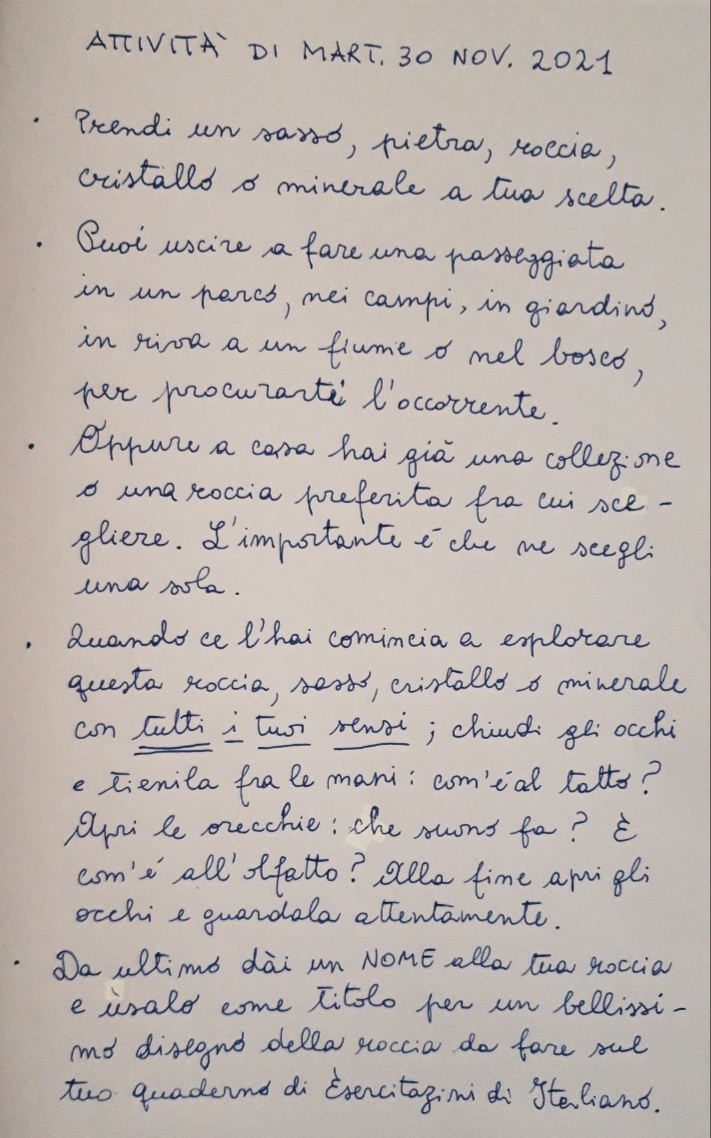 ATTIVITÀ DI MART. 30 NOV. 2021
• Prendi un sasso, pietra, roccia,
cristallo o minerale a tua scelta.
• Puoi uscire a fare una passeggiata
in un parco, nei campi, in giardino,
in riva a un fiume o nel bosco,
per procurarti l'occorrente.
• Oppure a casa hai già una collezione
o una roccia preferita fra cui sce-
gliere. L'importante é che ne scegli
una sola.
• Quando ce l'hai comincia a esplorare
questa roccia, sasso, cristallo o minerale
con tutti i tuoi sensi; chiudi gli occhi
e tienila fra le mani: com'é al tatto?
Apri le orecchie: che suono fa? E
com'é all'olfatto? Alla fine apri gli
occhi e guardala attentamente.
• Da ultimo dài un NOME alla tua roccia
e ùsalo come titolo per un bellissi-
mo disegno della roccia da fare sul
tuo quaderno di Esercitazini di Italiano.